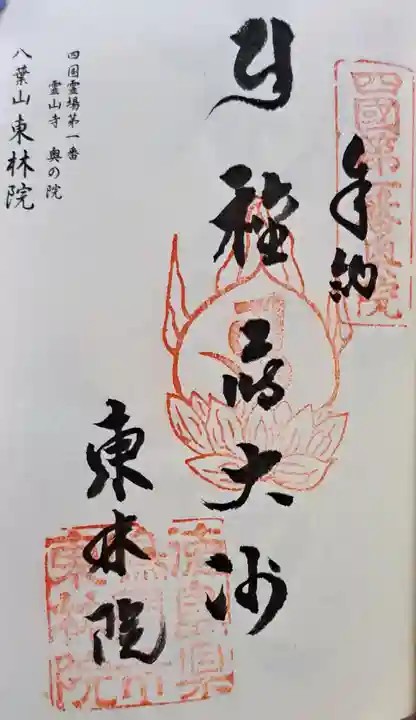 四國第一番奥院
奉納
種蒔大師
東林院
徳島県
東林院
四国霊場第一番
霊山寺 奥の院
八葉山東林院